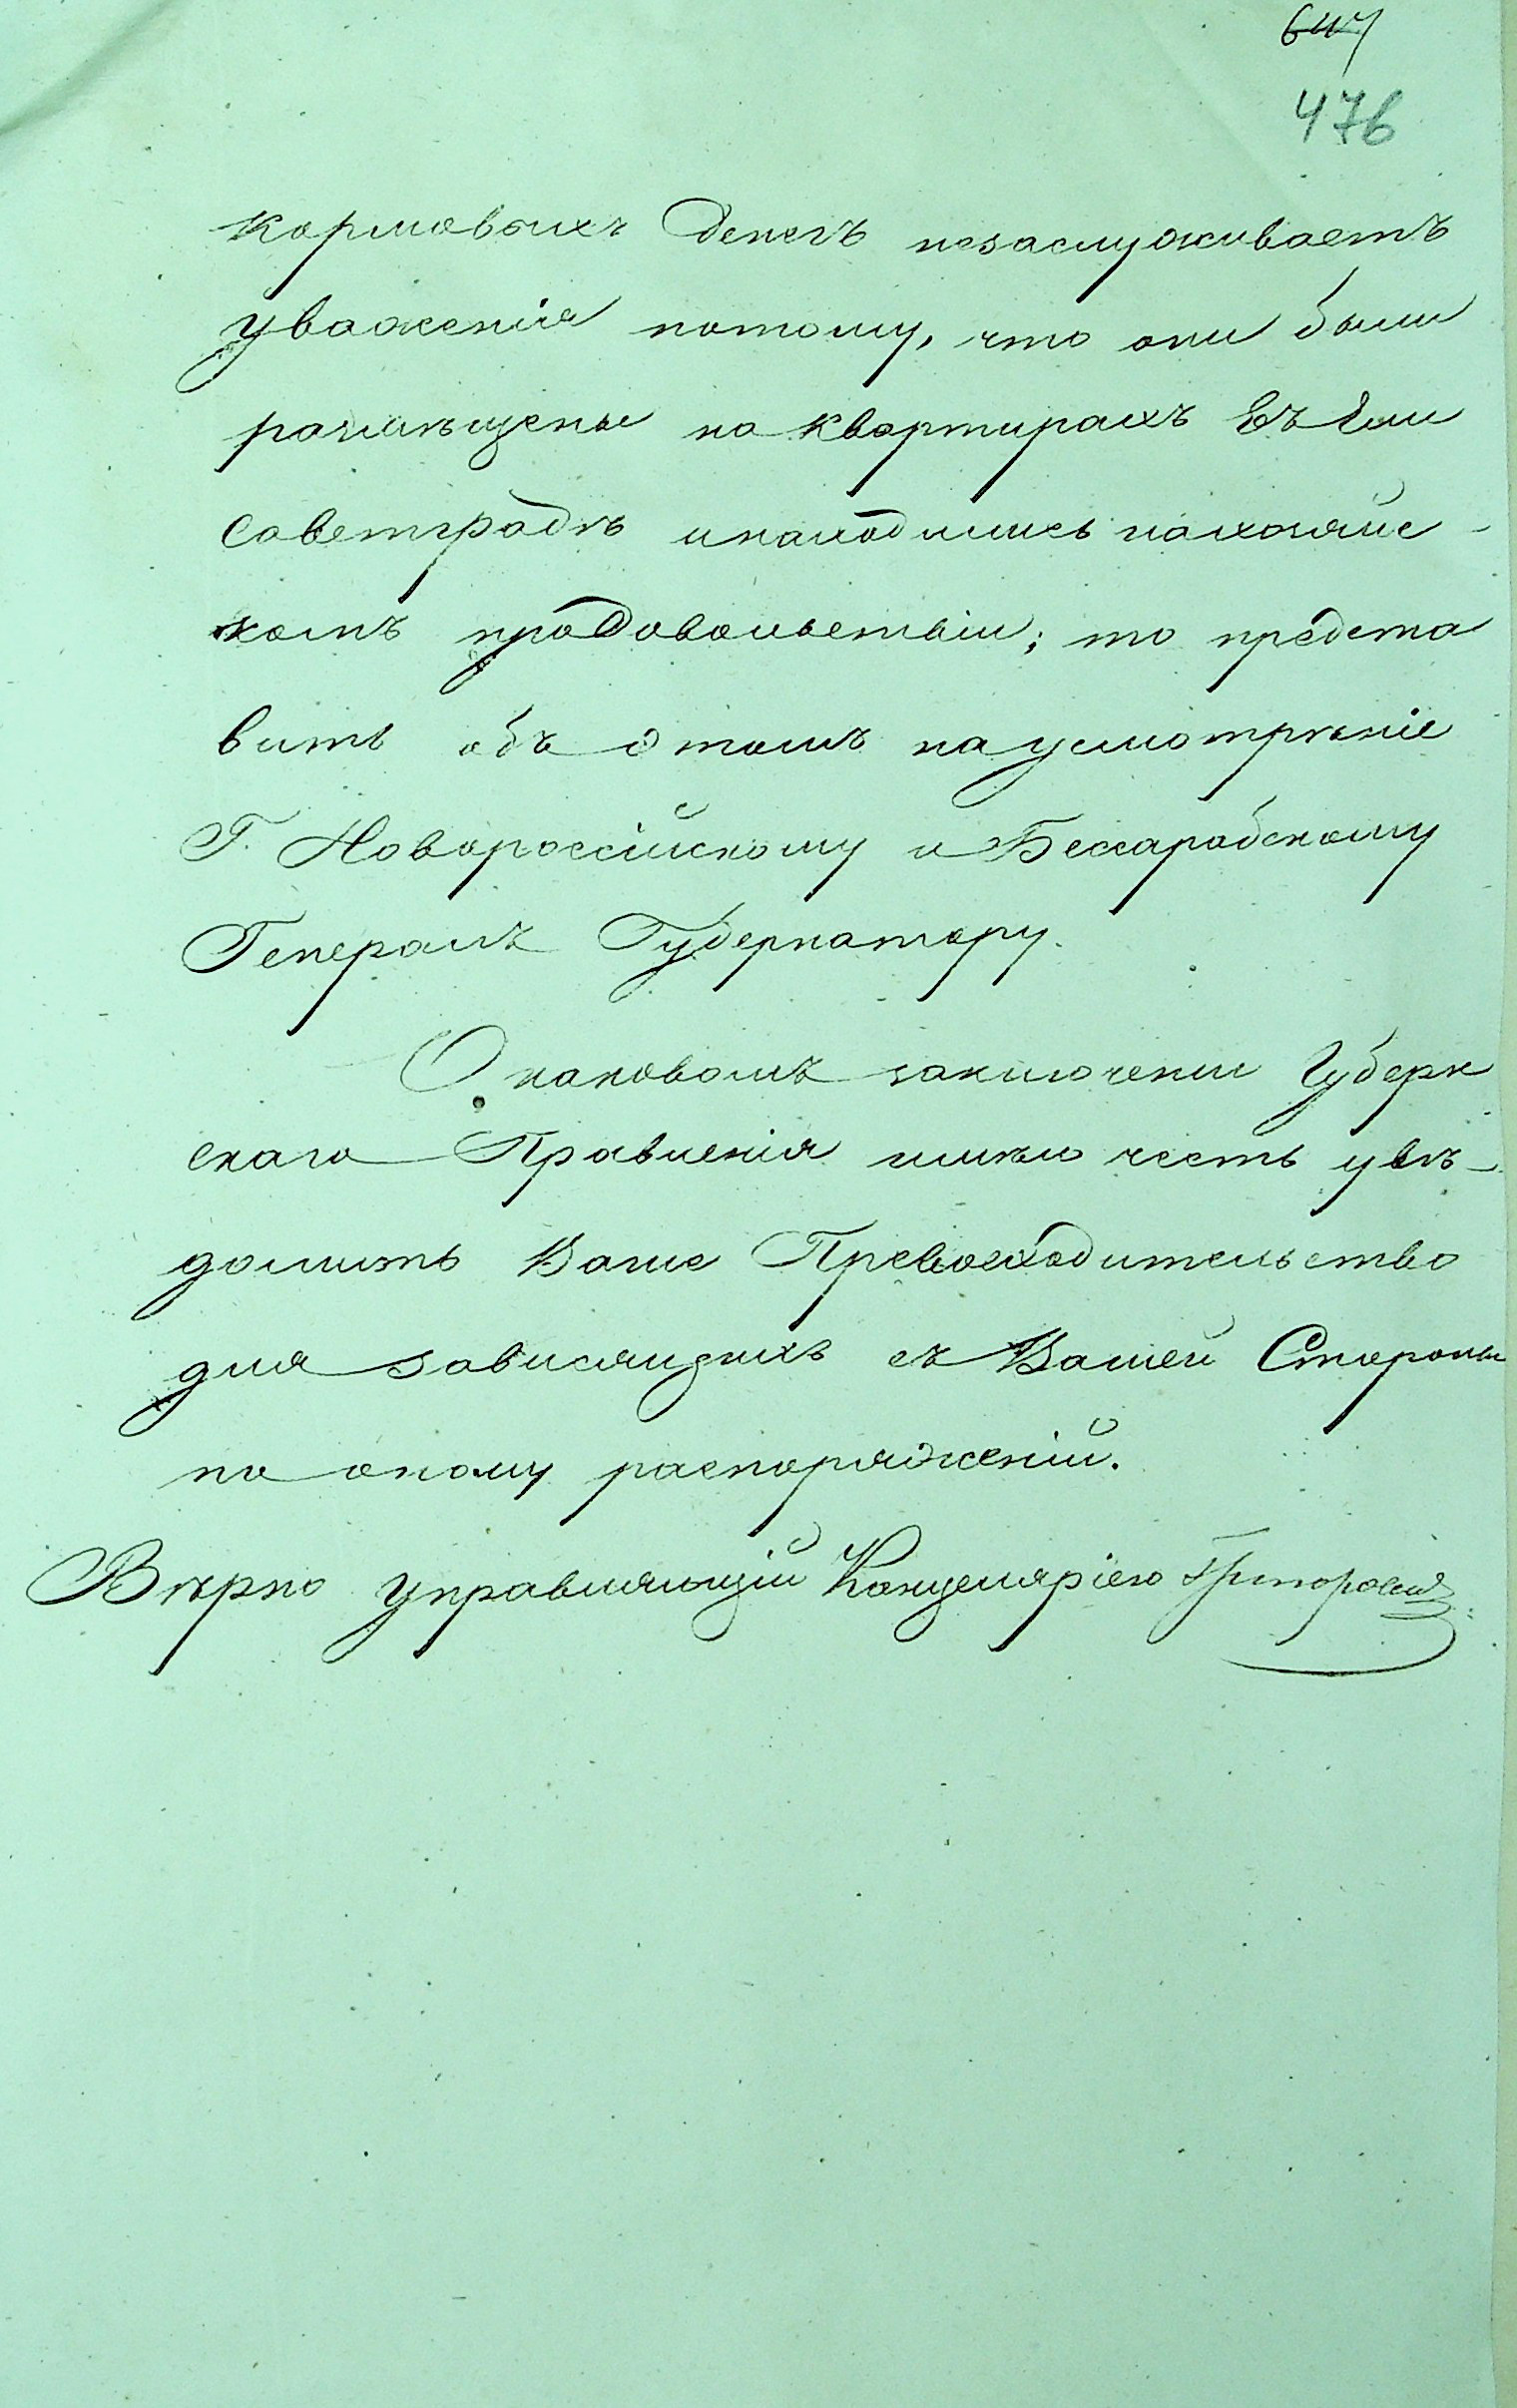 647
476
кормовыхъ денегъ незаслуживаетъ
уваженія потому, что они были
размѣщены на квартирахъ въ Ели
саветградѣ инаходились нахозяйс-
комъ продовольствіи; то предста
вить объ этомъ на усмотрѣніе
Г. Новороссійскому и Бессарабскому
Генералъ Губернатору.
О каковомъ заключеніи Губерн
скаго Правленія имѣю честь увѣ-
домить Ваше Превосходительство
для зависящихъ съ Вашей Стороны
по оному распоряженій.
Вѣрно Управляющій Канцеляріею